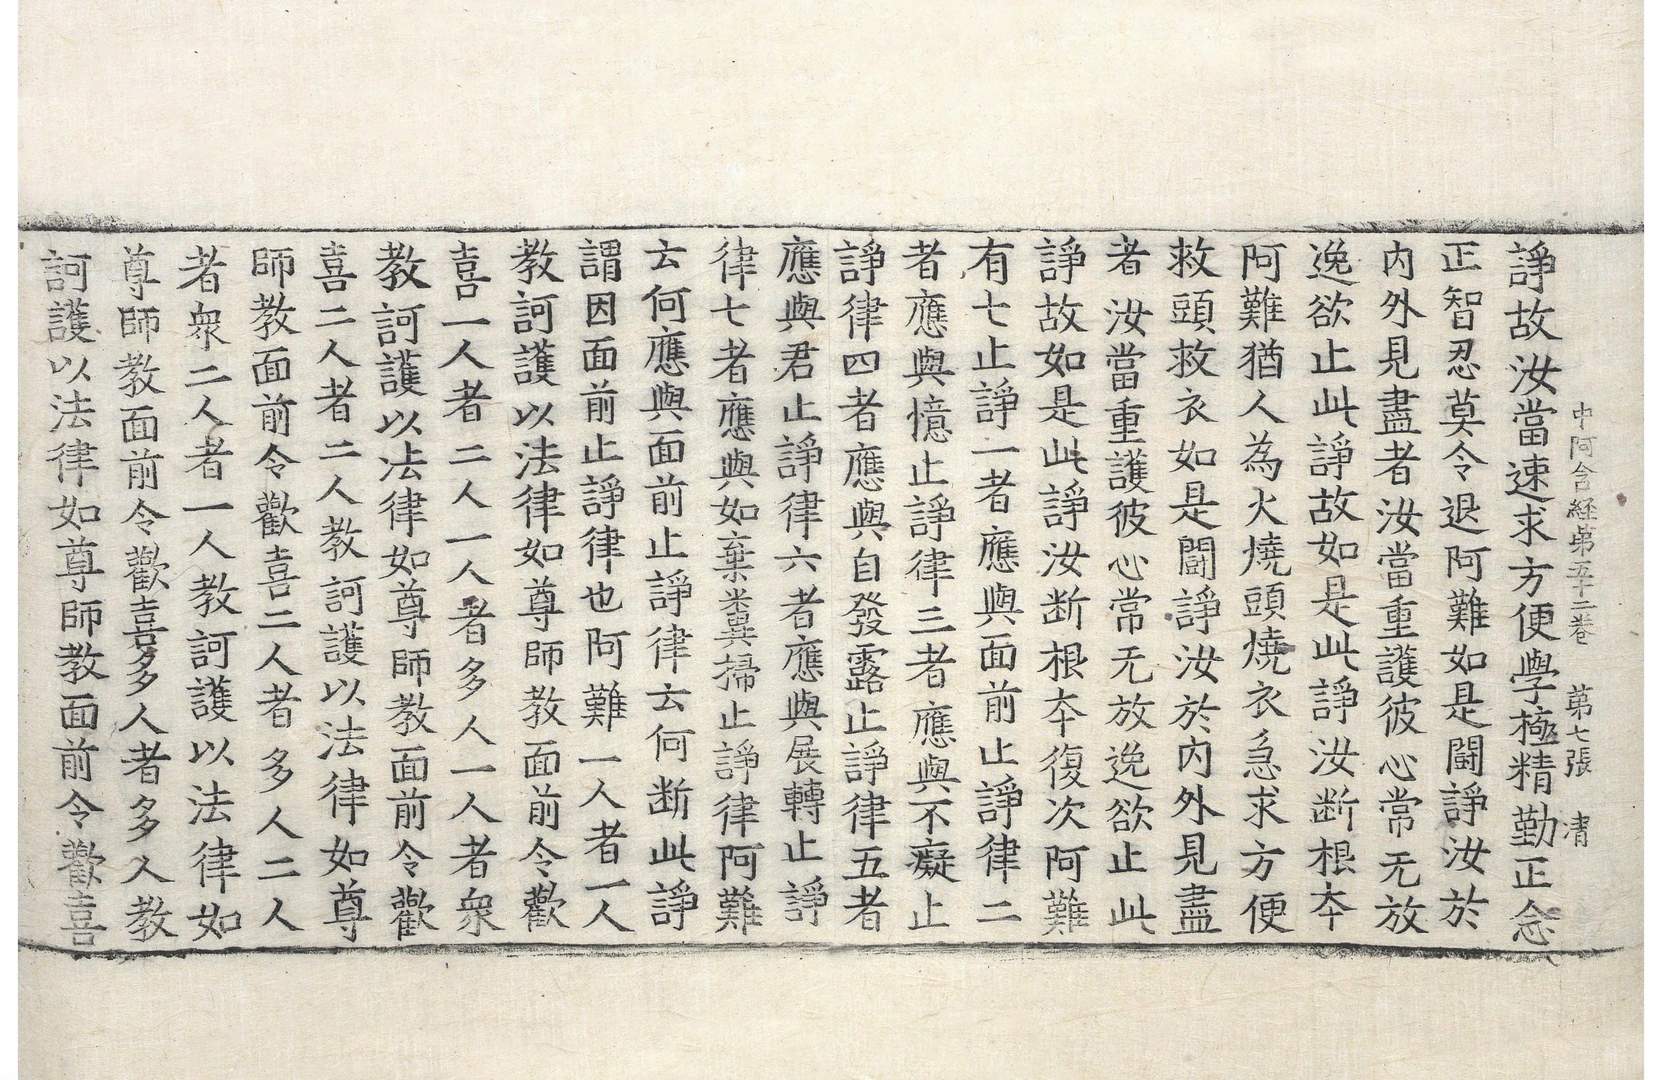 中阿含經第五十二卷 第七張 清
諍故汝當速求方便學極精勤正念
正智忍莫令退阿難如是鬪諍汝於
內外見盡者汝當重護彼心常无放
逸欲止此諍故如是此諍汝断根夲
阿難猶人為火燒頭燒衣急求方便
救頭救衣如是鬪諍汝於內外見盡
者汝當重護彼心常无放逸欲止此
諍故如是此諍汝断根夲復次阿難
有七止諍一者應與面前止諍律二
者應與憶止諍律三者應與不癡止
諍律四者應與自發露止諍律五者
應與君止諍律六者應與展轉止諍
律七者應與如棄糞掃止諍律阿難
云何應與面前止諍律云何断此諍
謂因面前止諍律也阿難一人者一人
教訶護以法律如尊師教面前令歡
喜一人者二人一人者多人一人者衆
教訶護以法律如尊師教面前令歡
喜二人者二人教訶護以法律如尊
師教面前令歡喜二人者多人二人
者衆二人者一人教訶護以法律如
尊師教面前令歡喜多人者多人教
訶護以法律如尊師教面前令歡喜